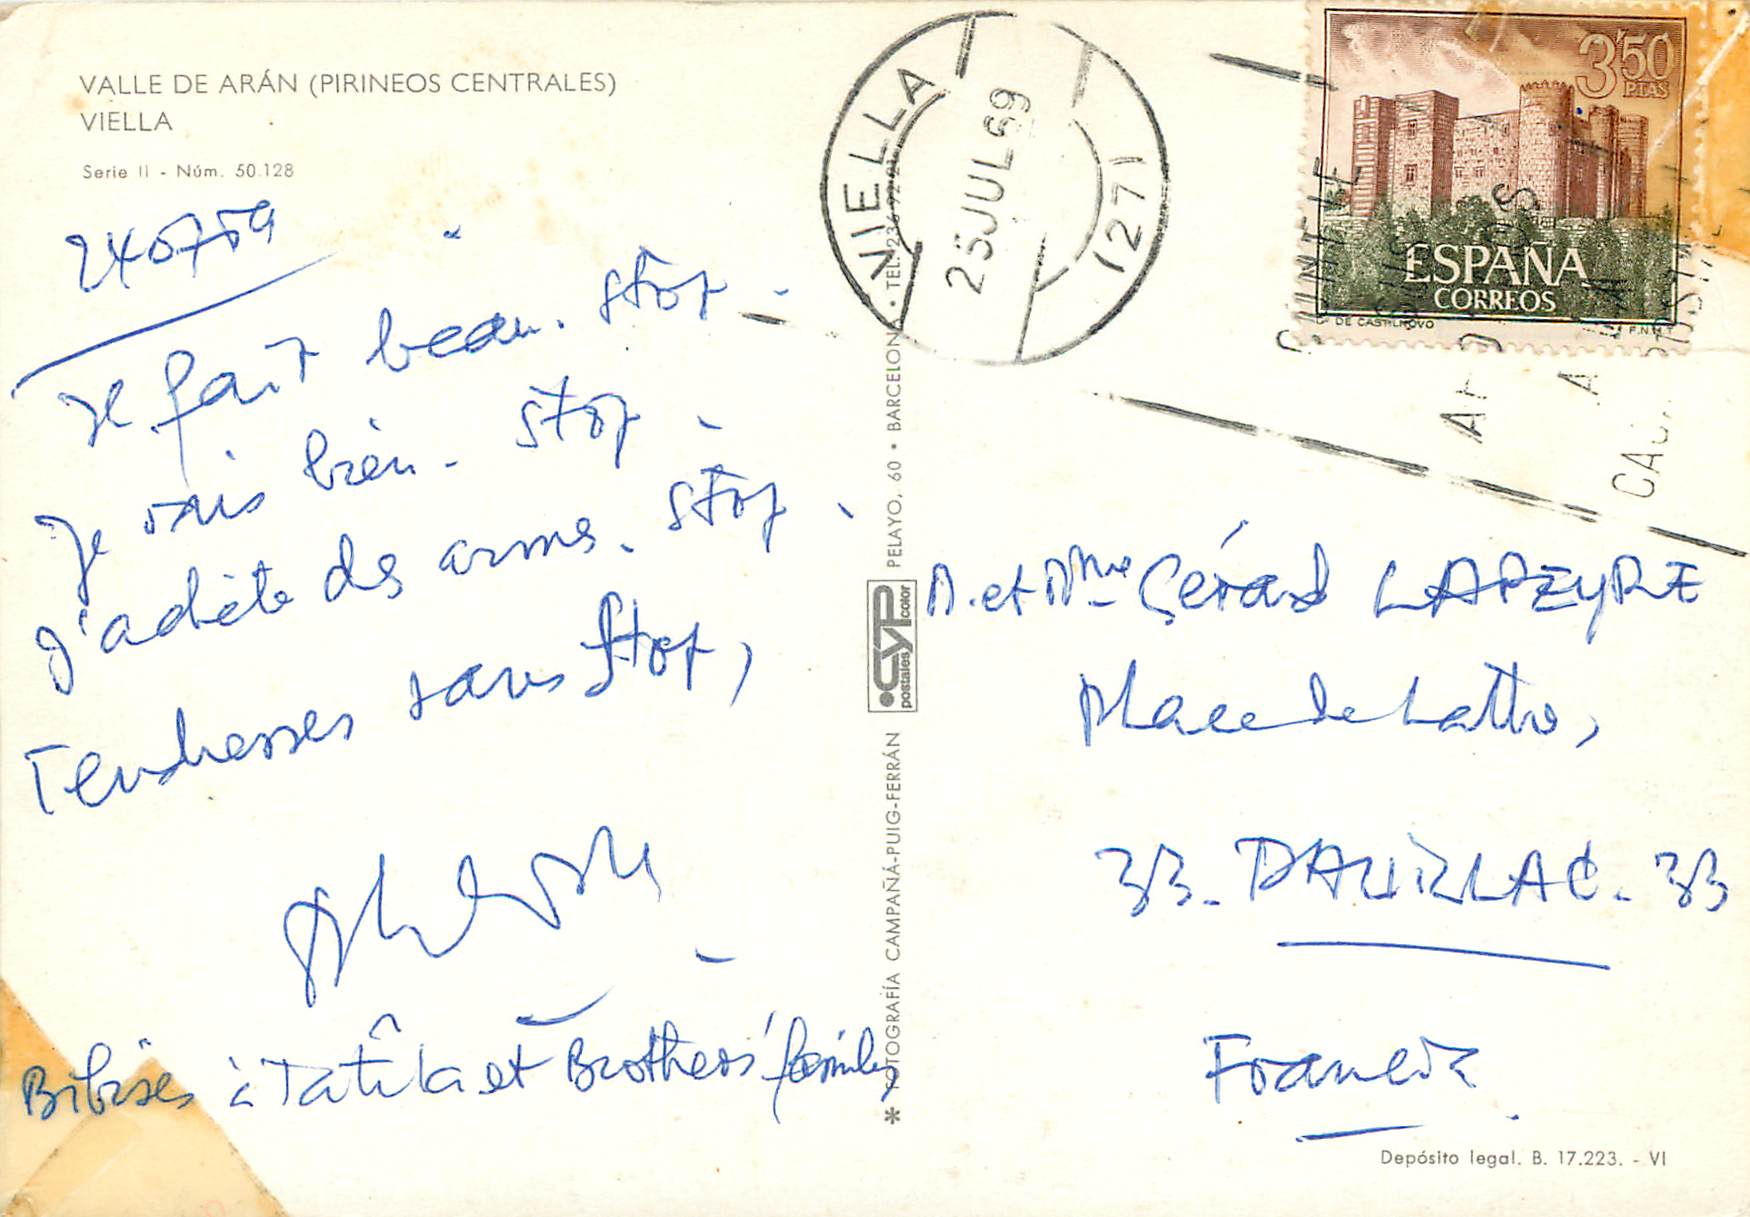 VALLE DE ARÁN (PIRINEOS CENTRALES)
VIELLA
Serie II - Núm. 50.128
240769
Je fait beau. stop.
Je vais bien. stop.
J'achète des armes. stop.
Tendresses sans stop,
Bibises à Tatika et Brothers' family
* FOTOGRAFÍA CAMPAÑÁ-PUIG-FERRÁN
CYP
postales color
PELAYO, 60 • BARCELONA • TEL. 236 92 21
VIELLA
25 JUL 69
1271
3'50
PTAS
ESPAÑA
CORREOS
Cº DE CASTILNOVO
F.N.M.T.
M. et Mme Gérard LAPEYRE
Place de Lattre,
33. PAUILLAC. 33
France
Depósito legal. B. 17.223. - VI